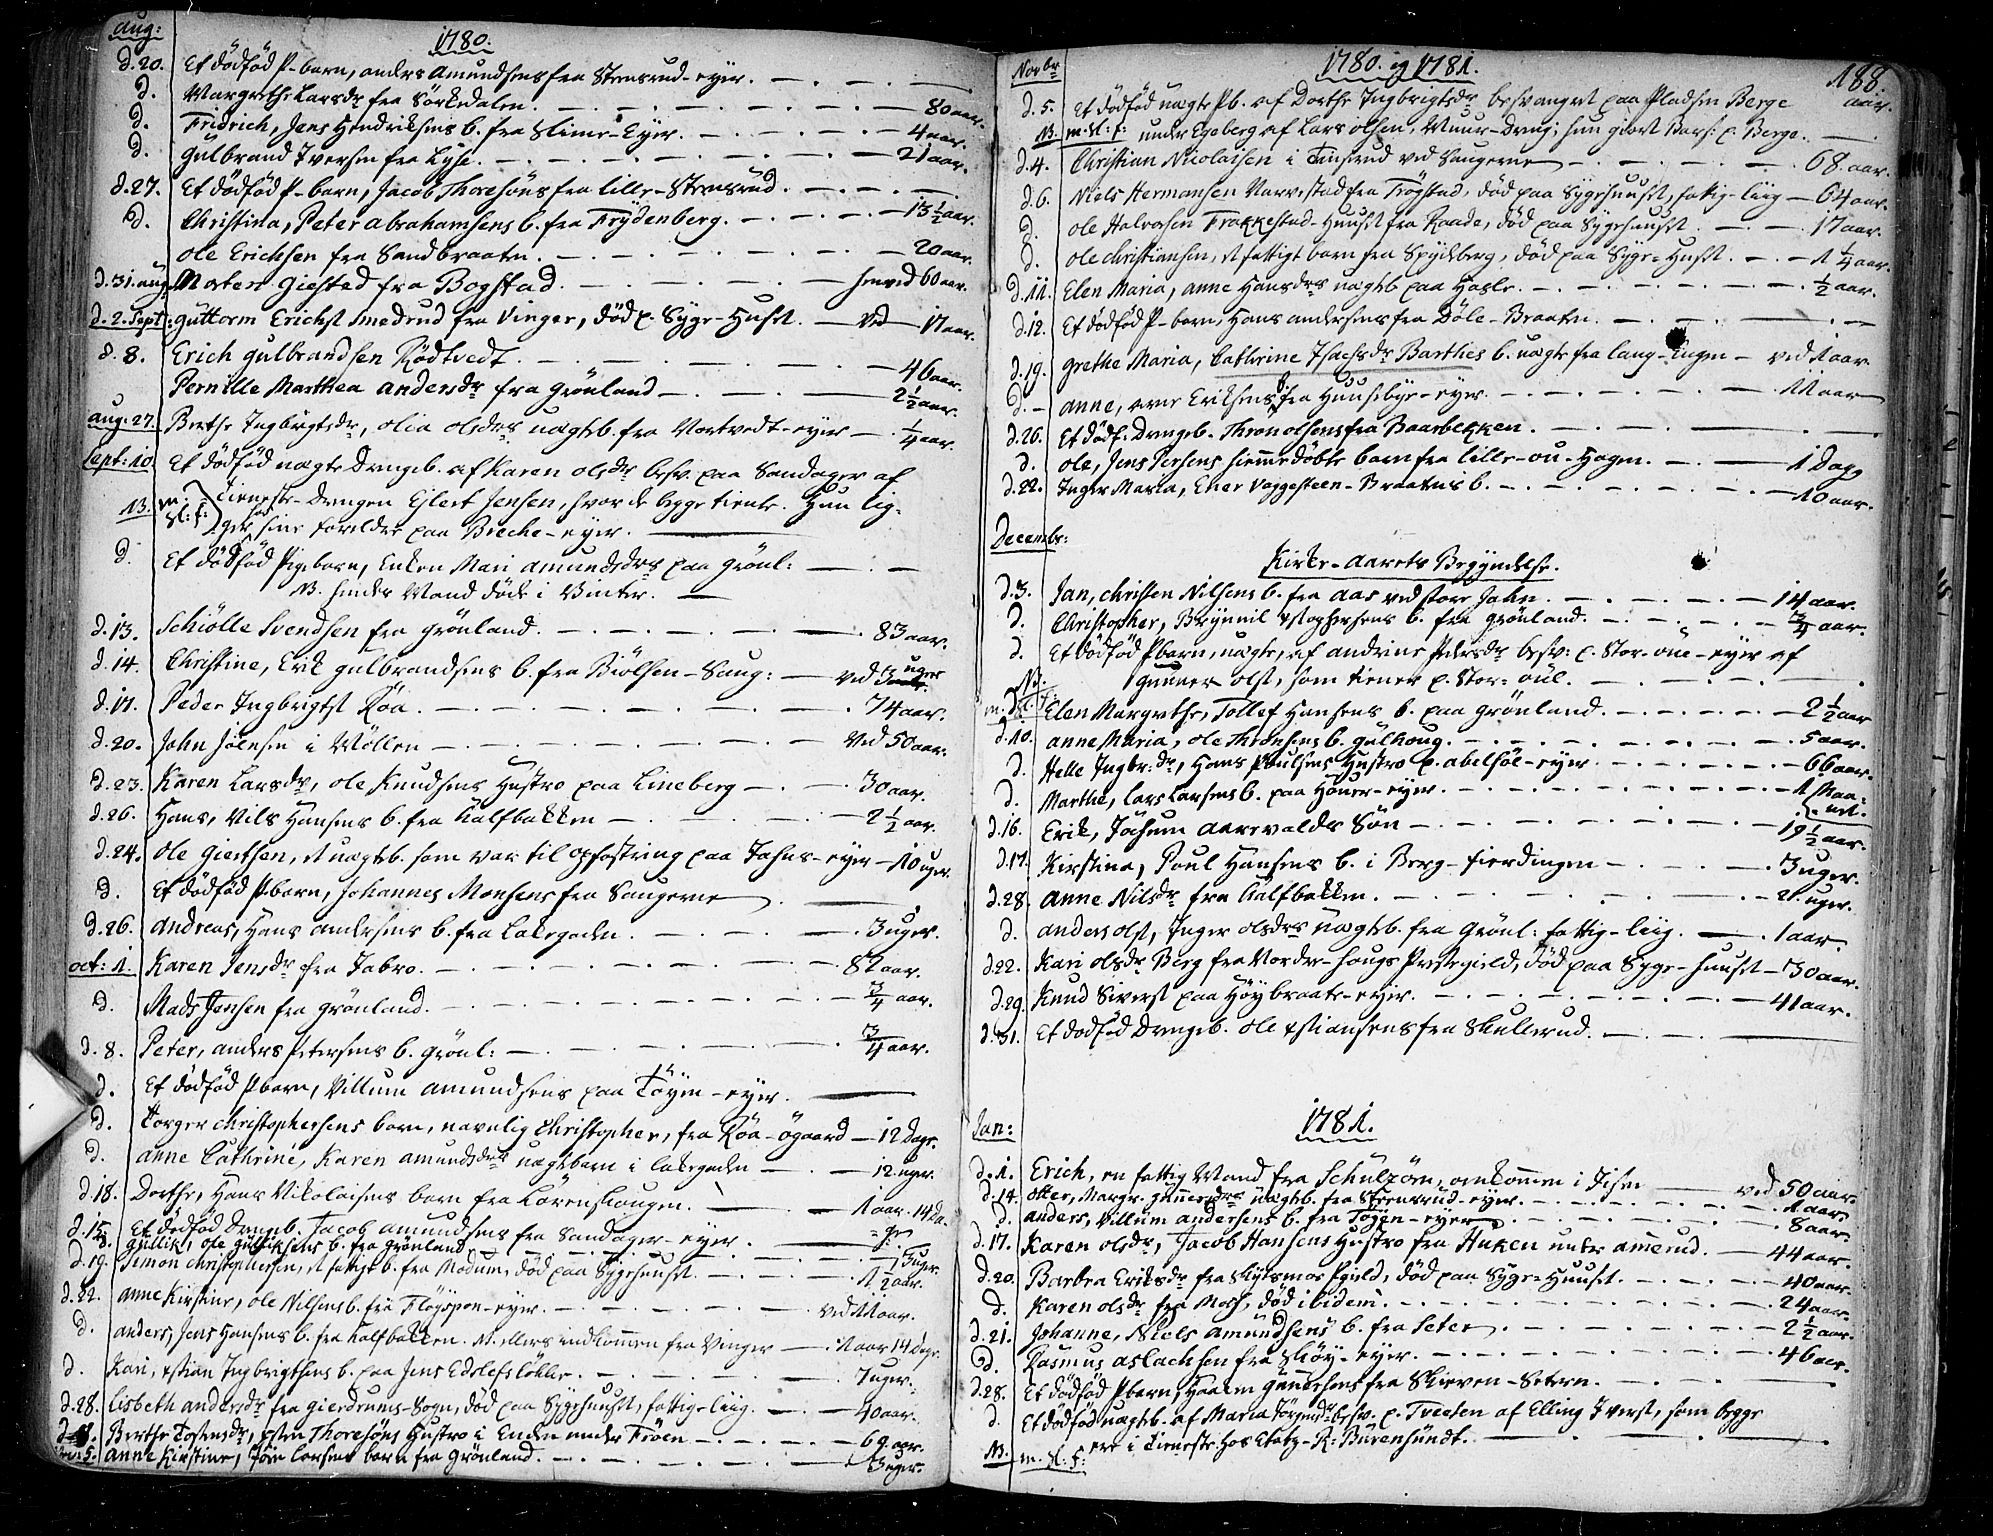 Aug: 1780.
d. 20. Et dödföd P-barn, anders Amundsens fra Stensrud-eyer.
d. Margrethe Larsdr fra Sörkedalen. 80 aar.
d. Fridrich, Jens Hendriksens b. fra Slime-Eyer. 4 aar.
d. Gulbrand Iversen fra Lyse. 21 aar.
d. 27. Et dödföd P-barn, Jacob Thoresöns fra lille-Stensrud.
d. Christina, Peter Abrahamsens b. fra Frydenberg. 13 1/2 aar.
Ole Erichsen fra Sandbraaten. 20 aar.
d. 31. aug. Morten Giested fra Bogstad. henved 60 aar.
d. 2. Sept: Guttorm Erichst Smedrud fra Vinger, död p. Syge-Huset. ved 17 aar.
d. 8. Erich Gulbrandsen Rödtvedt. 46 aar.
Pernille Marthea Andersdr fra Grönland 2 1/2 aar.
aug. 27. Berthe Ingbrigtsdr, Olia Olsdrs uægteb. fra Vortvedt-eyer 1/4 aar.
Sept: 10. Et dödföd uægte Drengeb. af Karen Olsdr besv. paa Sandager af
NB. m. Sl: f: Tieneste-Drengen Ejlert Jensen, hvor de begge tiente. Hun lig-
ger hos sine forældre paa Breche-eyer.
d. Et dödföd Pigebarn, Enken Mari Amundsdrs paa Grönl:
NB. hendes Mand döde i Vinter.
d. 13. Schiölle Svendsen fra Grönland. 83 aar.
d. 14. Christine, Erik Gulbrandsens b. fra Biölsen-Saug: ved 3 uger
d. 17. Peder Ingbrigtst Röa. 74 aar.
d. 20. John Joensen i Möllen ved 50 aar.
d. 23. Karen Larsdr, Ole Knudsens Hustro paa Lineberg 30 aar.
d. 26. Hans, Nils Hansens b. fra Kalfbakken 2 1/2 aar.
d. 24. Ole Giertsen, et uægteb. som var til opfostring paa Tasns-eyer 10 uger.
d. Et dödföd Pbarn, Johannes Monsens fra Saugerne
d. 26. Andreas, Hans Andersens b. fra Lakegaden. 3 uger.
Oct: 1. Karen Jensdr fra Jabro. 82 aar.
d. Mads Jensen fra Grönland. 3/4 aar.
d. 8. Peter, Anders Petersens b. Grönl: 3/4 aar.
d. Et dödföd Pbarn, Villum Amundsens paa Töyen-eyer.
d. Torger Christophersens barn, navnlig Christopher, fra Röa-ögaard 12 dage.
d. Anne Cathrine, Karen Amundsdrs uægtebarn i Lakegaden 12 uger.
d. 18. Dorthe, Hans Nikolaisens barn fra Lörenskougen. 1 aar. 14 da-
d. 15. Et dödföd Drengeb. Jacob Amundsens fra Sandager-eyer. ge
Gullik, Ole Gulliksens b. fra Grönland 13 uger.
d. 19. Simon Christophersen, et fattigt b. fra Modum, död paa Sygehuuset. 1 1/2 aar.
d. 22. Anne Kirstine, Ole Nilsens b. fra Flöjspon-eyer. ved 11 aar.
d. Anders, Jens Hansens b. fra Kalfbakken. ellers indkommen fra Vinger 1 aar 14 dage.
d. Kari, xstian Ingbrigtsens b. paa Jens Edslefs lökke. 7 uger.
d. 28. Lisbeth Andersdr fra Gierdrums-Sogn, död paa Sygehuuset, fattig-liig. 40 aar.
Berthe Tostensdr, Thoresöns Hustro i Enden under Fröen 69 aar.
Nov: 5. Anne Kirstine, Larsens barn fra Grönland. 3 uger.
Novbr 1780. og 1781. 188.
aar.
d. 5. Et dödföd uægte Pb. af Dorthe Ingbrigtsdr besvangret paa Pladsen Berge
NB. m. Sl: f: under Egeberg af Lars Olsen, Muur-Dreng; hun giort Bars: p. Berge.
d. 4. Christian Nicolaisen i Teinsrud ved Saugerne 68. aar.
d. 6. Niels Hermansen Narvestad fra Trögstad, död paa Sygehuuset, fattig-liig 64 aar.
d. Ole Halvorsen Frakkestad-Huuset fra Raade, död paa Sygehuuset. 17 aar.
d. Ole Christiansen, et fattigt barn fra Spydeberg, död paa Syge-Huset. 1 1/4 aar.
d. 11. Elen Maria, Anne Hansdrs uægteb paa Hasle. 1/2 aar.
d. 12. Et dödföd P-barn, Hans Andersens fra Döle-Braaten.
d. 19. Grethe Maria, Cathrine Isachsdr Barthes b. uægte fra Lang-Engen ved 1 aar.
d. Anne, Arne Eriksens b. fra Huuseby-eyer. 11 aar
d. 26. Et dödf. Drengeb. Thron Olsens fra Baarbekken.
d. Ole, Jens Persens hiemmedöbte barn fra lille-ou-Hagen. 1 Dag
d. 22. Inger Maria, Ener Vaggesteen-Braatens b. 10 aar.
Decembr:
Kirke-Aarets Begyndelse.
d. 3. Jan, Christen Nilsens b. fra Aas ved store Jahn. 14 aar.
d. Christopher, Brynnil xstophersens b. fra Grönland. 3/4 aar.
d. Et dödföd Pbarn, uægte, af Andrine Pedersdr besv: p. Stor-oue-eyer af
NB. m. Sl: f: Gunner Olst, som tiener p. Stor-oul.
Elen Margrethe, Tollef Hansens b. paa Grönland. 2 1/2 aar
d. 10. Anne Maria, Ole Thronsens b. Gulhoug. 5 aar.
d. Helle Ingbr: dr, Hans Poulsens Hustro p. Abelsöe-eyer 66 aar.
d. Marthe, Lars Larsens b. paa Houer-eyer. 1 Maa-
net.
d. 16. Erik, Jochum Aarevalds Sön 19 1/2 aar.
d. 17. Kirstina, Poul Hansens b. i Berg-fierdingen 3 uger.
d. 28. Anne Nilsdr fra Kalfbakken. 2. uger.
d. Anders Olst, Inger Olsdrs uægteb. fra Grönl: fattig-liig. 1 aar.
d. 22. Kari Olsdr Berg fra Norder-Hougs Prestegield, död paa Syge-huuset 30 aar.
d. 29. Knud Siverst paa Höybraate-eyer. 41 aar.
d. 31. Et dödföd Drengeb. Ole xstiansens fra Skullerud.
1781.
Jan:
d. 1. Erich, en fattig Mand fra Schulzön, omkommen i Disen ved 50 aar.
d. 14. Otter, Margr. Gunnersdrs uægteb. fra Steensrud-eyer. 1 aar.
d. Anders, Villum Andersens b. fra Töyen-eyer 8 aar.
d. 17. Karen Olsdr, Jacob Hansens Hustro fra Huken under Amerud. 44 aar.
d. 20. Barbra Eriksdr fra Skytsmoe Pgield, död paa Syge-Huuset. 40 aar.
d. Karen Olsdr fra Mosh, död ibidem. 24 aar.
d. 21. Johanne, Niels Amundsens b. fra Seter 2 1/2 aar.
d. Rasmus Aslachsen fra Sköy-eyer. 46 aar.
d. 28. Et dödföd Pbarn, Haagen Gundersens fra Skieven-Setern.
d. Et dödföd uægteb. af Maria Jörgensdr besv. p. Tveeten af Elling Iverst, som begge
NB. m. Sl: f: ere i Tieneste hos Etatz-R: Burensundt.